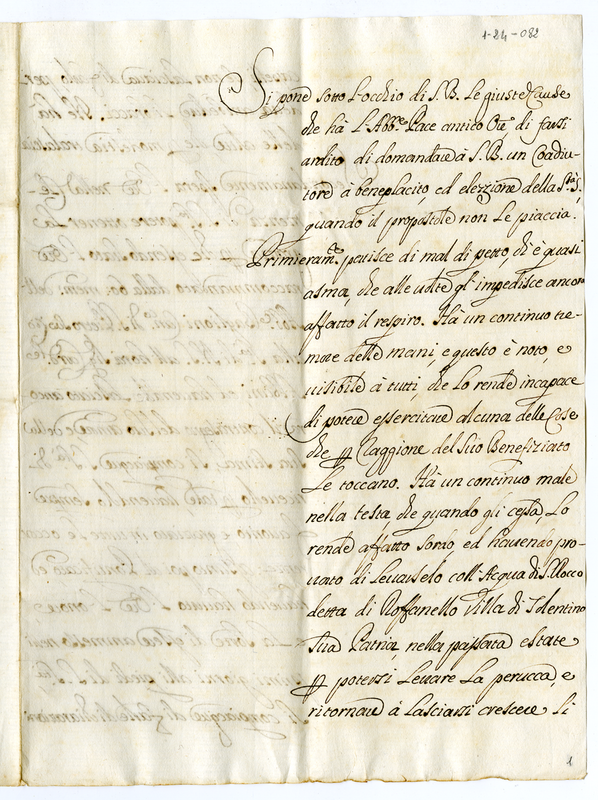 1-24-082
Si pone sotto l'occhio di S. B. le giuste Cause
che hà l'Abb.e Pace antico Ore, di farsi
ardito di domandare à S. B. un Coadiu-
tore à beneplacito, ed elezzione della S.tà S.
quando il proposto le non le piaccia.
Primieram.te patisce di mal di petto, ch'è quasi
asma, che alle volte gl'impedisce ancor
affatto il respiro. Hà un continuo tre-
more delle mani, e questo è noto, e
visibile à tutti, che lo rende incapace
di potere essercitare alcuna delle Cose
che p Raggione del Suo Benefiziato
Le toccano. Hà un continuo male
nella testa, che quando gli cessa, lo
rende affatto sordo, ed havendo pro-
vato di Levarselo coll'Acqua di S. Rocco
detta di Roffanello Villa di Tolentino
Sua Patria, nella passata estate
p potersi Levare La perucca, e
ritornare à Lasciarsi crescere li
1